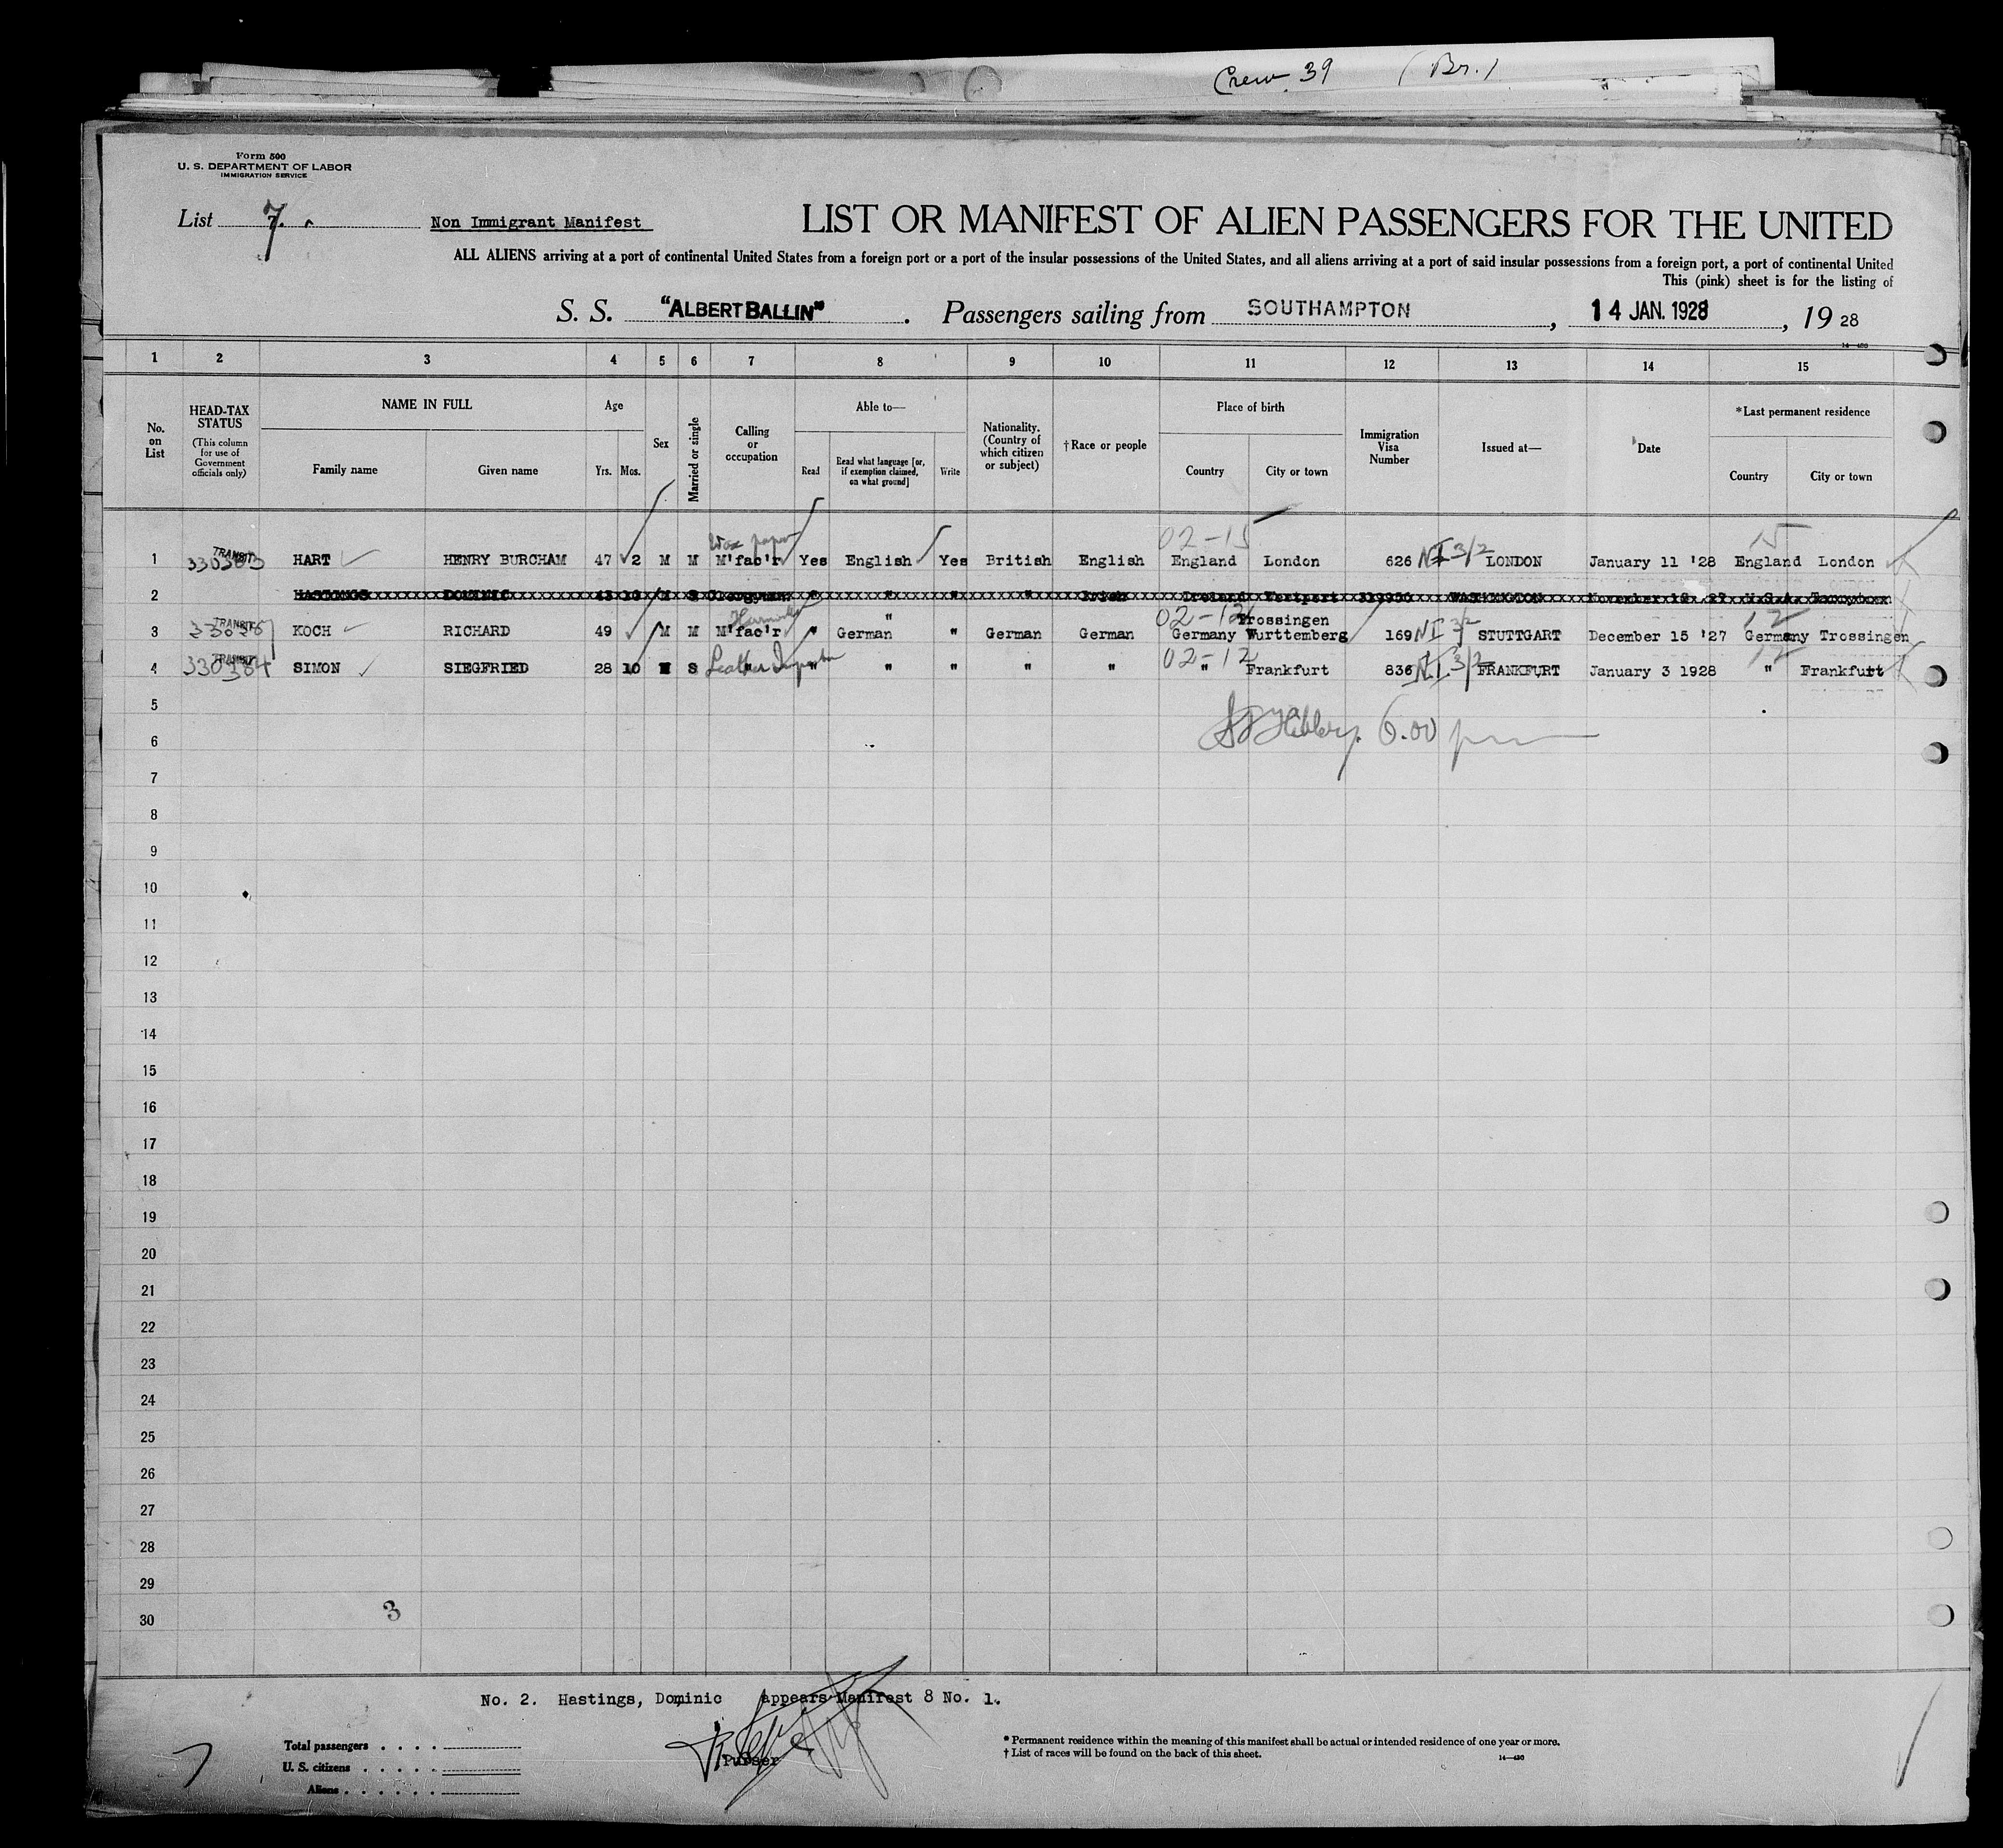 Crew 39 (Br.)
Form 500
U. S. DEPARTMENT OF LABOR
IMMIGRATION SERVICE
List 7. Non Immigrant Manifest
LIST OR MANIFEST OF ALIEN PASSENGERS FOR THE UNITED
ALL ALIENS arriving at a port of continental United States from a foreign port or a port of the insular possessions of the United States, and all aliens arriving at a port of said insular possessions from a foreign port, a port of continental United
This (pink) sheet is for the listing of
S. S. "ALBERT BALLIN". Passengers sailing from SOUTHAMPTON, 14 JAN. 1928, 19 28
14—430
1 2 3 4 5 6 7 8 9 10 11 12 13 14 15
No. on List
HEAD-TAX STATUS
(This column for use of Government officials only)
NAME IN FULL
Family name
Given name
Age
Yrs. Mos.
Sex
Married or single
Calling or occupation
Able to—
Read
Read what language [or, if exemption claimed, on what ground]
Write
Nationality. (Country of which citizen or subject)
†Race or people
Place of birth
Country
City or town
Immigration Visa Number
Issued at—
Date
*Last permanent residence
Country
City or town
Wax paper 02-15 15
1 TRANSIT 330383 HART HENRY BURCHAM 47 2 M M M'fac'r Yes English Yes British English England London 626 NI 3/2 LONDON January 11 '28 England London
2 HASTINGS DOMINIC 43 10 M S Clergyman " " " " Irish Ireland Westport 319930 WASHINGTON November 18 27 U.S.A.
02-12 Trossingen 12
3 TRANSIT KOCH RICHARD 49 M M M'fac'r " German " German German Germany Wurttemberg 169 NI 3/2 STUTTGART December 15 '27 Germany Trossingen
02-12 12
4 TRANSIT 330384 SIMON SIEGFRIED 28 10 M S Leather Importer " " " " " " Frankfurt 836 N.I. 3/2 FRANKFURT January 3 1928 " Frankfurt
5
6.00 pm
6
7
8
9
10
11
12
13
14
15
16
17
18
19
20
21
22
23
24
25
26
27
28
29
3
30
No. 2. Hastings, Dominic appears Manifest 8 No. 1.
Total passengers . . . .
U. S. citizens . . . . .
Aliens . . . . . .
Purser
* Permanent residence within the meaning of this manifest shall be actual or intended residence of one year or more.
† List of races will be found on the back of this sheet.
14—430